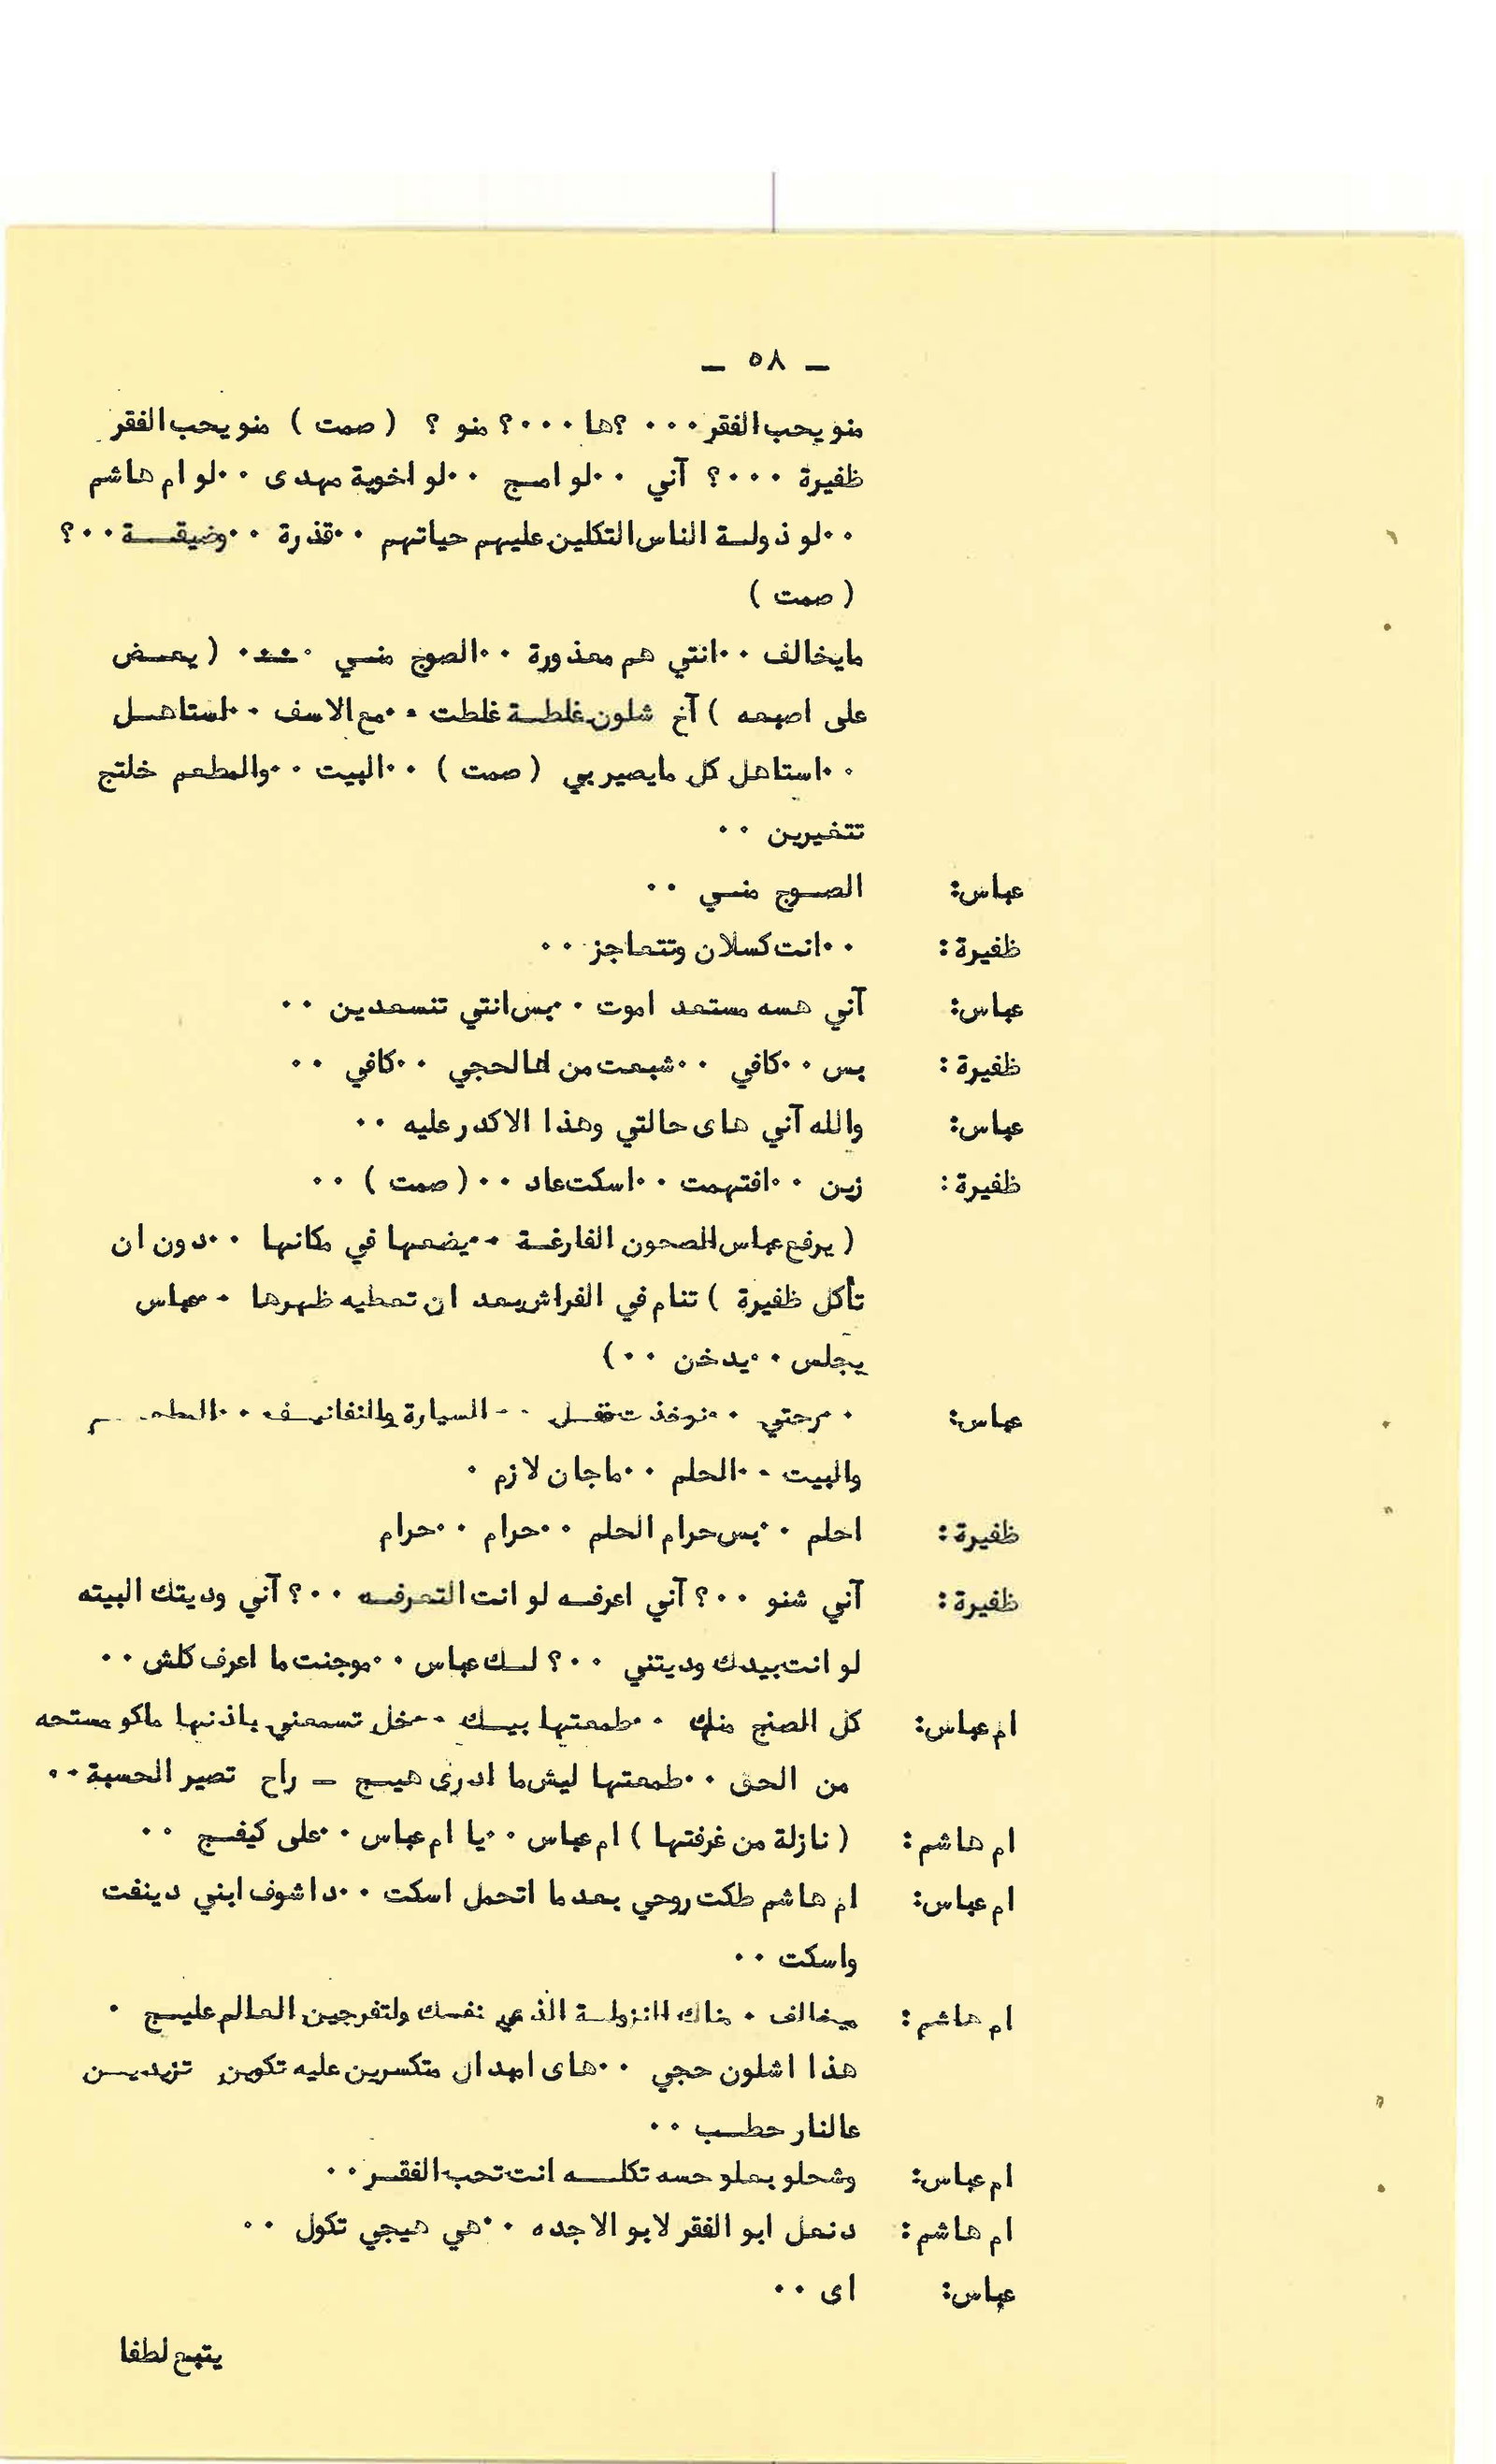 ــ ٥٨ ــ
منو يحب الفقر ٠٠٠ ؟ها ٠٠٠؟ منو ؟ ( صمت ) منو يحب الفقر
ظفيرة ٠٠٠؟ آني ٠٠لو امـج ٠٠لو اخوية مهدى ٠٠لو ام هاشم
٠٠لو ذولـة الناس التكلين عليهم حياتهم ٠٠قذرة ٠٠وضيقـــة ٠٠؟
( صمت )
مايخالف ٠٠انتي هم معذورة ٠٠الصوج منـي ٠٠٠ ( يعــض
على اصبعه ) آخ شلون غلطـة غلطت ٠٠مع الاسف ٠٠استاهــل
٠٠استاهل كل مايصير بي ( صمت ) ٠٠البيت ٠٠والمطعم خلتج
تتغيرين ٠٠
عباس: الصـوج منـي ٠٠
ظفيرة : ٠٠انت كسلان وتتعاجز ٠٠
عباس: آني هسه مستعد اموت ٠٠بس انتي تنسعدين ٠٠
ظفيرة : بس ٠٠كافي ٠٠شبعت من هالحجي ٠٠كافي ٠٠
عباس: والله آني هاى حالتي وهذا الاكدر عليه ٠٠
ظفيرة : زين ٠٠افتهمت ٠٠اسكت عاد ٠٠( صمت ) ٠٠
( يرفع عباس الصحون الفارغـة ٠٠يضعها في مكانها ٠٠دون ان
تأكل ظفيرة ) تنام في الفراش بعد ان تعطيه ظهرها ٠٠عباس
يجلس ٠٠يدخن ٠٠)
عباس: ٠٠مرحتي ٠٠ السيارة والنفانيـف ٠٠المطعــم
والبيت ٠٠الحلم ٠٠ماجان لازم ٠
ظفيرة : احلم ٠٠بس حرام الحلم ٠٠حرام ٠٠حرام
ظفيرة : آني شنو ٠٠؟ آني اعرفـه لو انت التعرفـه ٠٠؟ آني وديتك البيته
لو انت بيدك وديتني ٠٠؟ لـك عباس ٠٠موجنت ما اعرف كلش ٠٠
ام عباس: كل الصنج منك ٠٠طمعتها بيـك ٠٠خل تسمعني باذنها ماكو مستحه
من الحق ٠٠طمعتها ليش ما ادرى هيـج ــ راح تصير الحسبة ٠٠
ام هاشم : ( نازلة من غرفتها ) ام عباس ٠٠يا ام عباس ٠٠على كيفـج ٠٠
ام عباس: ام هاشم طكت روحي بعد ما اتحمل اسكت ٠٠داشوف ابني دينفت
واسكت ٠٠
ام هاشم : ميخالف ٠ نفسك ولتفرجين العالم عليـج ٠
هذا اشلون حجي ٠٠هاى متكسرين عليه تكوين تزيديــن
عالنار حطـب ٠٠
ام عباس: وشحلو بعلو حسه تكلــه انت تحب الفقـر ٠٠
ام هاشم : دنعل ابو الفقر لابو الاجده ٠٠هي هيجي تكول ٠٠
عباس: اى ٠٠
يتبع لطفا